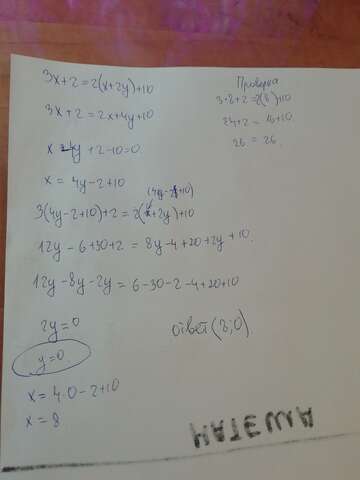 3x+2=2(x+2y)+10
3x+2=2x+4y+10
x-4y+2-10=0.
x = 4y-2+10
(4y-2+10)
3(4y-2+10)+2=2(x+2y)+10
12y-6+30+2 = 8y-4+20+2y+10.
12y-8y-2y=6-30-2-4+20+10
2y=0
y=0.
x=4·0-2+10
x=8
Проверка
3·8+2=2(8)+10
24+2=16+10.
26=26.
ответ(8;0)
МАТЕША